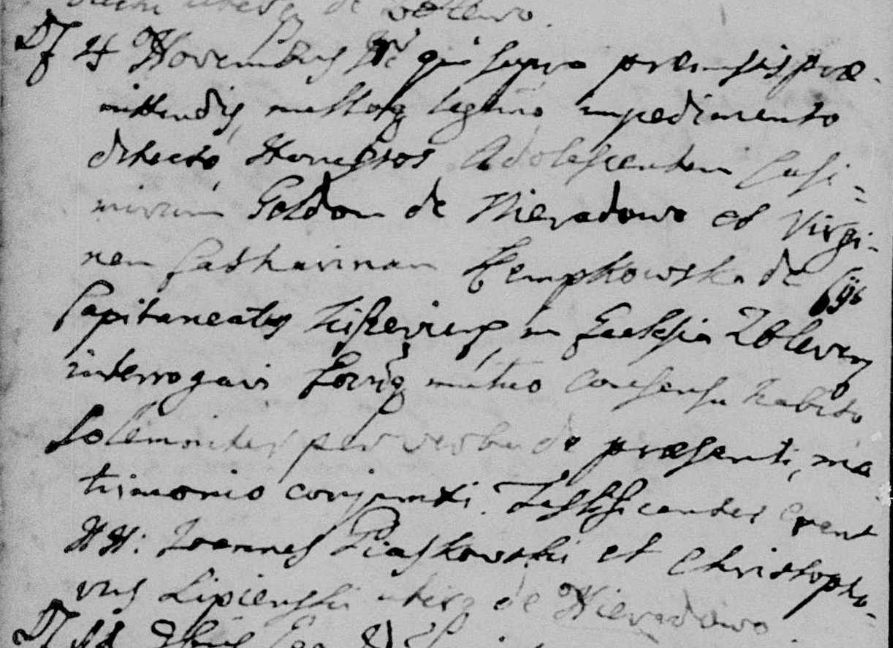 de
D 4 Novembris Id qui supra præmissis præ-
mittendis, nulloq legitimo impedimento
detecto, Honestos Adolescentem Casi=
mirum Goldon de Nieradowo et Virgi=
nem Catharinam Kempkowska de
Capitaneatus in Ecclesia Zblevien
interrogavi eorūq mutuo consensu habito
Solemniter per verba de præsenti, ma
trimonio conjunxi. Testificantes erant
HH: Joannes Piaskowski et Christopho-
rus Lipienski uterq de Nieradowo.
D